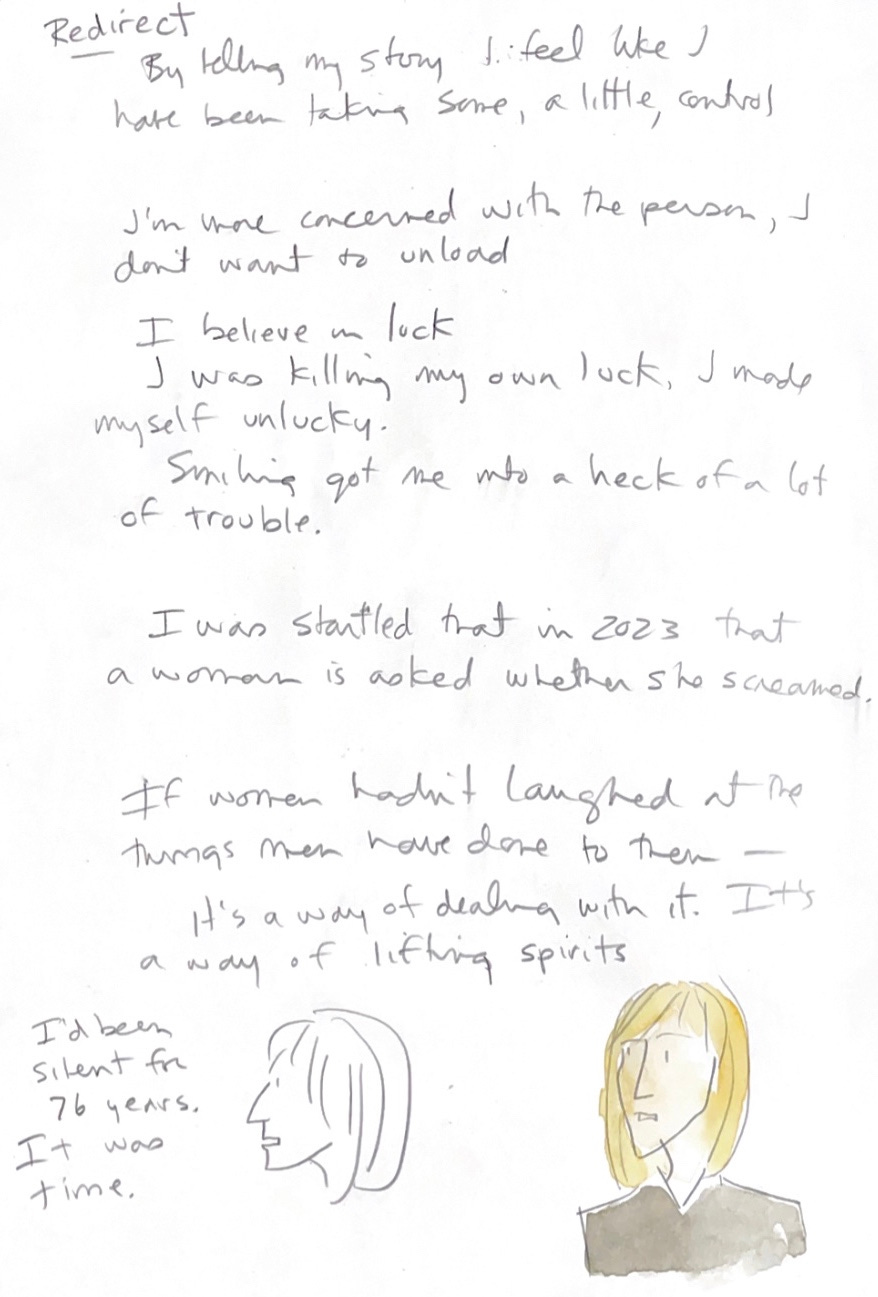 Redirect
By telling my story I feel like I
have been taking some, a little, control
I'm more concerned with the person, I
don't want to unload
I believe in luck
I was killing my own luck, I made
myself unlucky.
Smiling got me into a heck of a lot
of trouble.
I was startled that in 2023 that
a woman is asked whether she screamed.
If women hadn't laughed at the
things men have done to them —
It's a way of dealing with it. It's
a way of lifting spirits
I'd been
silent for
76 years.
It was
time.